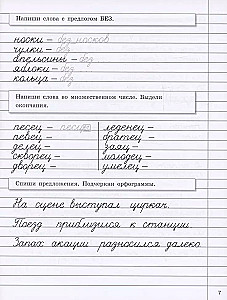 Напиши слова с предлогом БЕЗ.
носки – без носков
чулки – без
апельсины – без
яблоки – без
кольца – без
Напиши слова во множественном числе. Выдели окончания.
песец – песцы леденец –
певец – братец –
делец – заяц –
скворец – молодец –
дворец – умелец –
Спиши предложения. Подчеркни орфограммы.
На сцене выступал циркач.
Поезд приблизился к станции.
Запах акации разносился далеко.
7